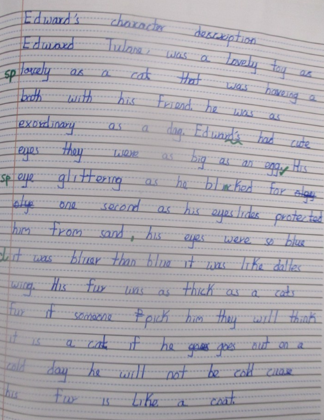 Edward's character description
Edward Tulane was a lovely toy as
sp lovely as a cat that was having a
bath with his Friend he was as
exordinary as a dog. Edward's had cute
eyes they were as big as an egg His
sp eye glittering as he blinked for
one second as his eyeslides protected
him from sand, his eyes were so blue
it was bluer than blue it was like dalles
wing. His fur was as thick as a cats
fur if someone pick him they will think
it is a cat if he goes out on a
cold day he will not be cold cause
his fur is like a coat.